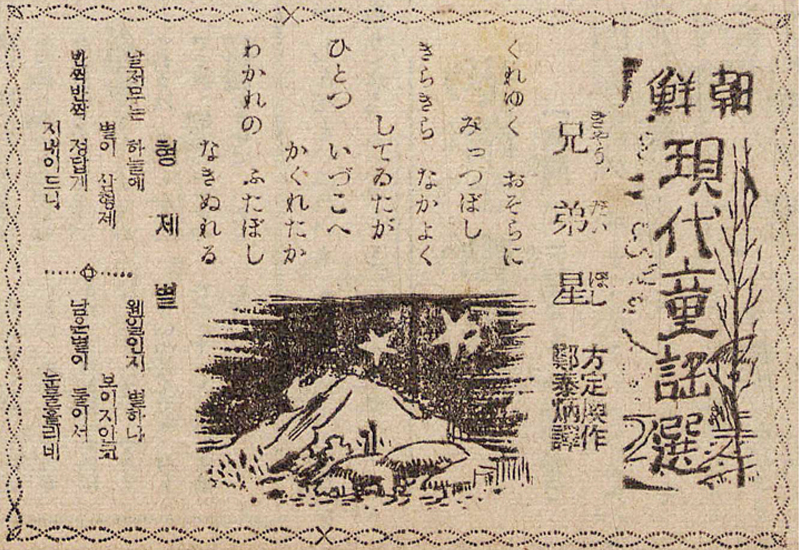 朝鮮
現代童謠選
兄弟星
きやうだいぼし
方定煥作
鄭泰炳譯
くれゆく おそらに
みっつぼし
きらきら なかよく
してゐたが
ひとつ いづこへ
かくれたか
わかれの ふたぼし
なきぬれる
형제별
날저무는 하늘에
별이 삼형제
반짝반짝 정답게
지내이드니
웬일인지 별하나
보이지안코
남은별이 둘이서
눈물흘리네